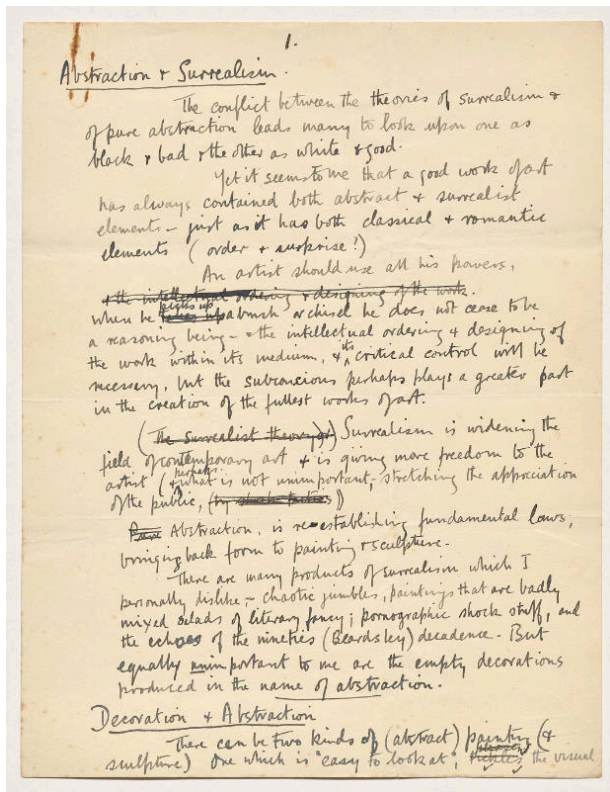 1.
Abstraction & Surrealism.
The conflict between the theories of surrealism &
of pure abstraction leads many to look upon one as
black & bad & the other as white & good.
Yet it seems to me that a good work of art
has always contained both abstract & surrealist
elements – just as it has both classical & romantic
elements (order & surprise?)
An artist should use all his powers,
& the intellectual ordering & designing of the work.
picks up
when he takes up a brush or chisel he does not cease to be
a reasoning being – & the intellectual ordering & designing of
the work within its medium, & its critical control will be
necessary, but the subconscious perhaps plays a greater part
in the creation of the fullest works of art.
(The Surrealist theory) Surrealism is widening the
field of contemporary art & is giving more freedom to the
perhaps
artist (& what is not unimportant, – stretching the appreciation
of the public, (by shock tactics))
Pure Abstraction, is re-establishing fundamental laws,
bringing back form to painting & sculpture.
There are many products of surrealism which I
personally dislike, – chaotic jumbles, paintings that are badly
mixed salads of literary fancy; pornographic shock stuff, and
the echoes of the nineties (Beardsley) decadence – But
equally unimportant to me are the empty decorations
produced in the name of abstraction.
Decoration & Abstraction
There can be two kinds of (abstract) painting (&
sculpture) One which is "easy to look at", tickles the visual